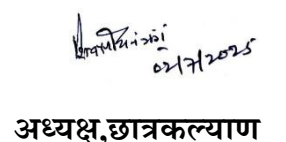 02/7/2025
अध्यक्ष,छात्रकल्याण